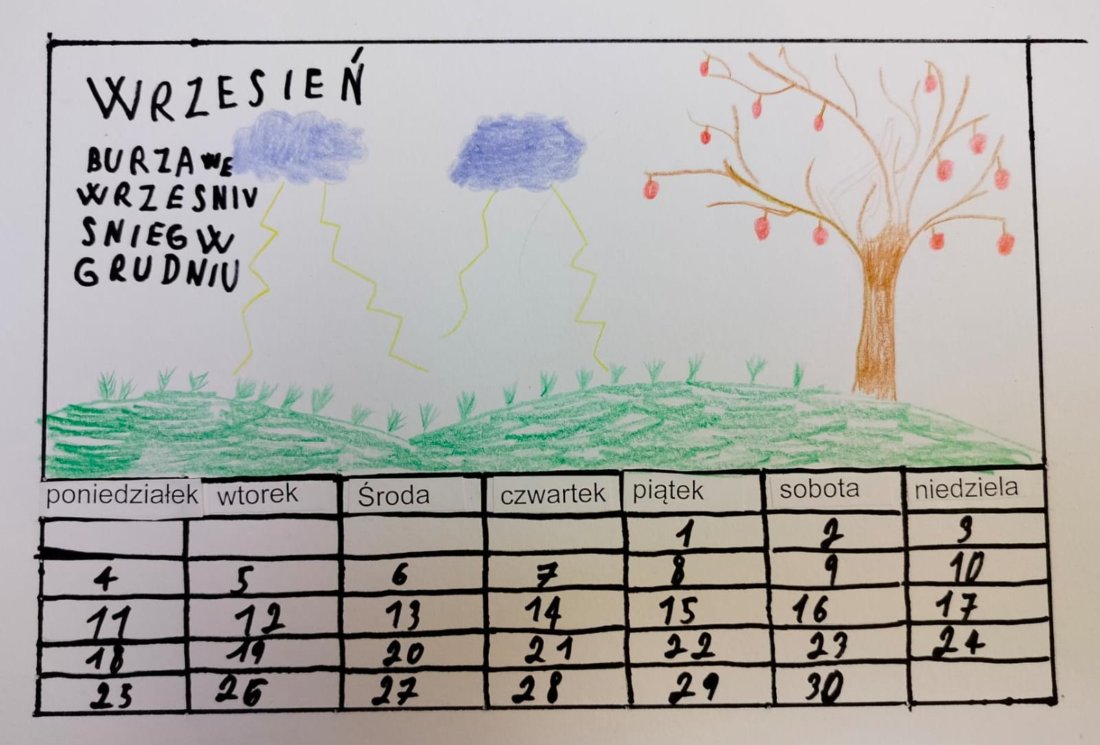 WRZESIEŃ
BURZA WE
WRZESNIU
SNIEG W
GRUDNIU
poniedziałek wtorek Środa czwartek piątek sobota niedziela
1 2 3
4 5 6 7 8 9 10
11 12 13 14 15 16 17
18 19 20 21 22 23 24
25 26 27 28 29 30